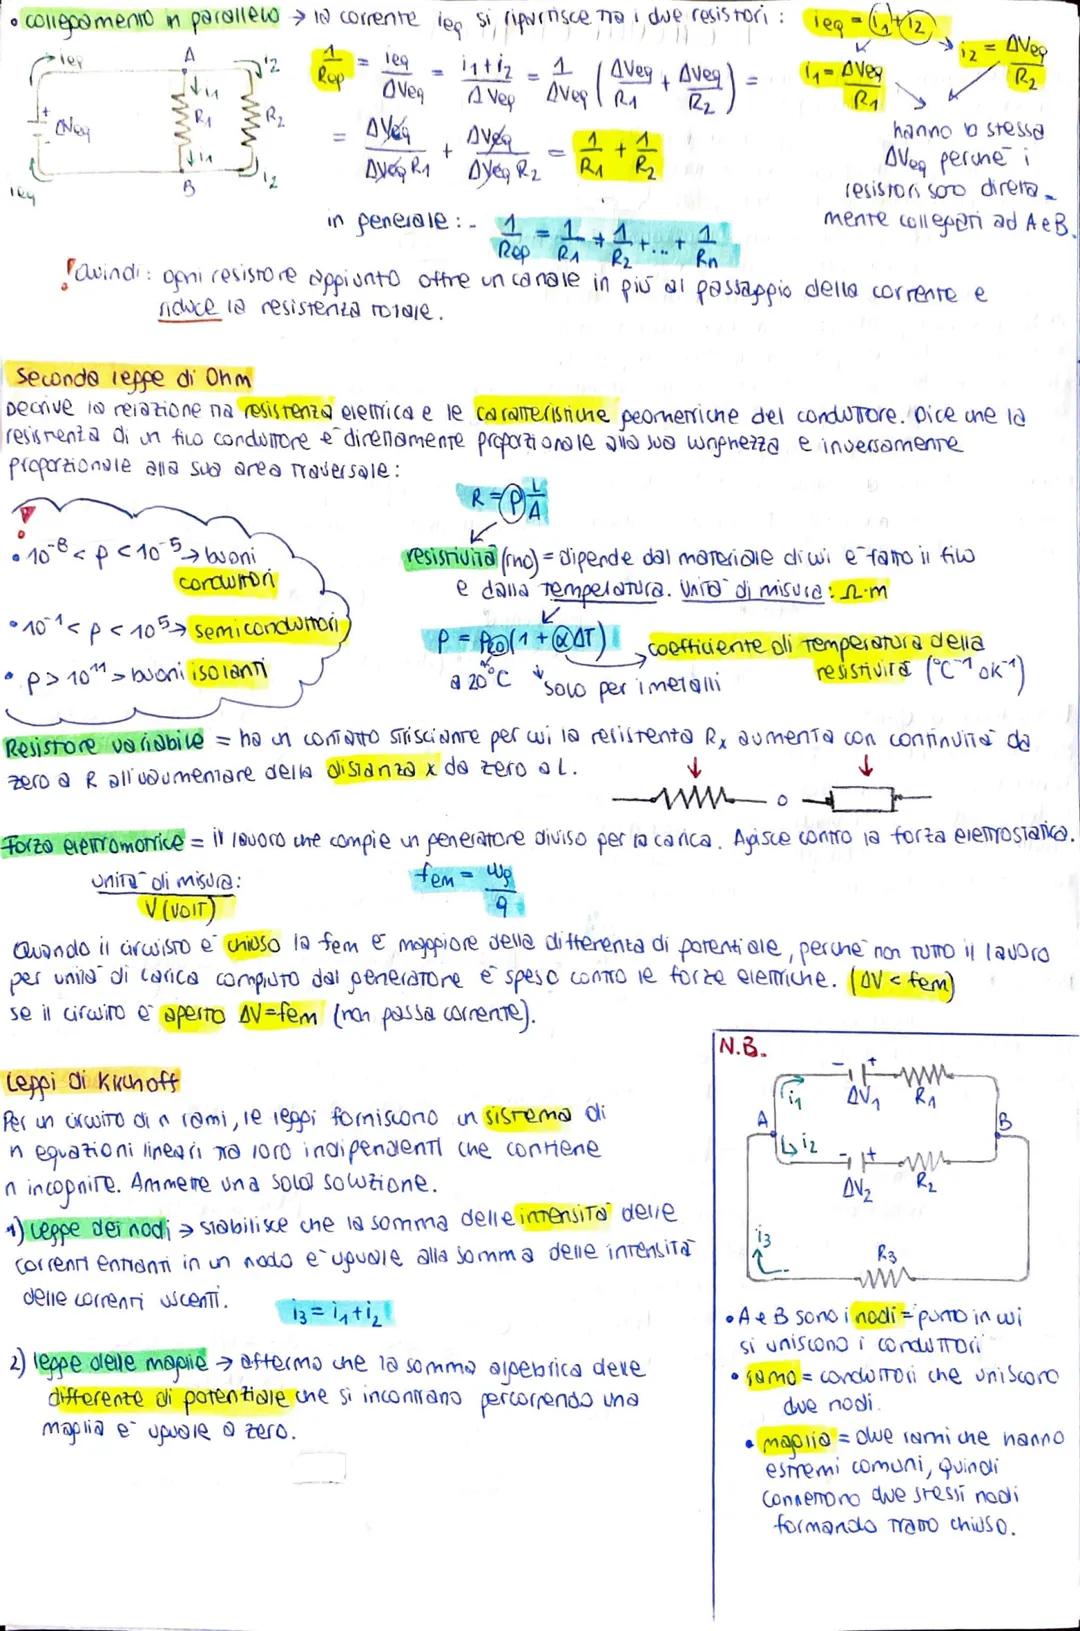 • collegamento in parallelo → la corrente ieq si ripartisce tra i due resistori : ieq = i1 + i2
i1 = ΔVeq / R1
i2 = ΔVeq / R2
hanno la stessa
ΔVeq perché i
resistori sono diretta-
mente collegati ad A e B.
ieq A i2
i1 R1 R2
+ - ΔVeq
i1 B i2
ieq
1/Rep = ieq/ΔVeq = i1+i2/ΔVeq = 1/ΔVeq (ΔVeq/R1 + ΔVeq/R2) =
= ΔVeq/ΔVeq R1 + ΔVeq/ΔVeq R2 = 1/R1 + 1/R2
in generale :- 1/Rep = 1/R1 + 1/R2 + ... + 1/Rn
! Quindi : ogni resistore aggiunto offre un canale in più al passaggio della corrente e
riduce la resistenza totale.
Seconda legge di Ohm
Decrive la relazione tra resistenza elettrica e le caratteristiche geometriche del conduttore. Dice che la
resistenza di un filo conduttore è direttamente proporzionale alla sua lunghezza e inversamente
proporzionale alla sua area trasversale :
R = ρ L/A
!
• 10⁻⁸ < ρ < 10⁻⁵ → buoni
conduttori
• 10⁻¹ < ρ < 10⁵ → semiconduttori
• ρ > 10¹¹ → buoni isolanti
resistività (rho) = dipende dal materiale di cui è fatto il filo
e dalla temperatura. Unità di misura : Ω·m
ρ = ρ20 (1 + αΔT)
a 20°C solo per i metalli
coefficiente di temperatura della
resistività (°C⁻¹ o K⁻¹)
Resistore variabile = ha un contatto strisciante per cui la resistenta Rx aumenta con continuità da
zero a R all'uaumentare della distanza x da zero a L.
o
Forza elettromotrice = il lavoro che compie un generatore diviso per la carica. Agisce contro la forza elettrostatica.
unità di misura :
V (VOLT)
fem = Wg/q
Quando il circuisto è chiuso la fem è maggiore della differenza di potentiale, perché non tutto il lavoro
per unità di carica compiuto dal generatore è speso contro le forze elettriche. (ΔV < fem)
se il circuito è aperto ΔV=fem (non passa corrente).
Leggi di Kirchoff
Per un circuito di n rami, le leggi forniscono un sistema di
n equazioni lineari tra loro indipendenti che contiene
n incognite. Ammette una sola soluzione.
1) legge dei nodi → stabilisce che la somma delle intensità delle
correnti entranti in un nodo è uguale alla somma delle intensità
delle correnti uscenti.
i3 = i1 + i2
2) legge delle maglie → afferma che la somma algebrica delle
differenze di potenziale che si incontrano percorrendo una
maglia è uguale a zero.
N.B.
- +
i1 ΔV1 R1
A B
i2 - +
ΔV2 R2
i3
R3
• A e B sono i nodi = punto in cui
si uniscono i conduttori
• ramo = conduttori che uniscono
due nodi.
• maglia = due rami che hanno
estremi comuni, quindi
connettono due stessi nodi
formando tratto chiuso.